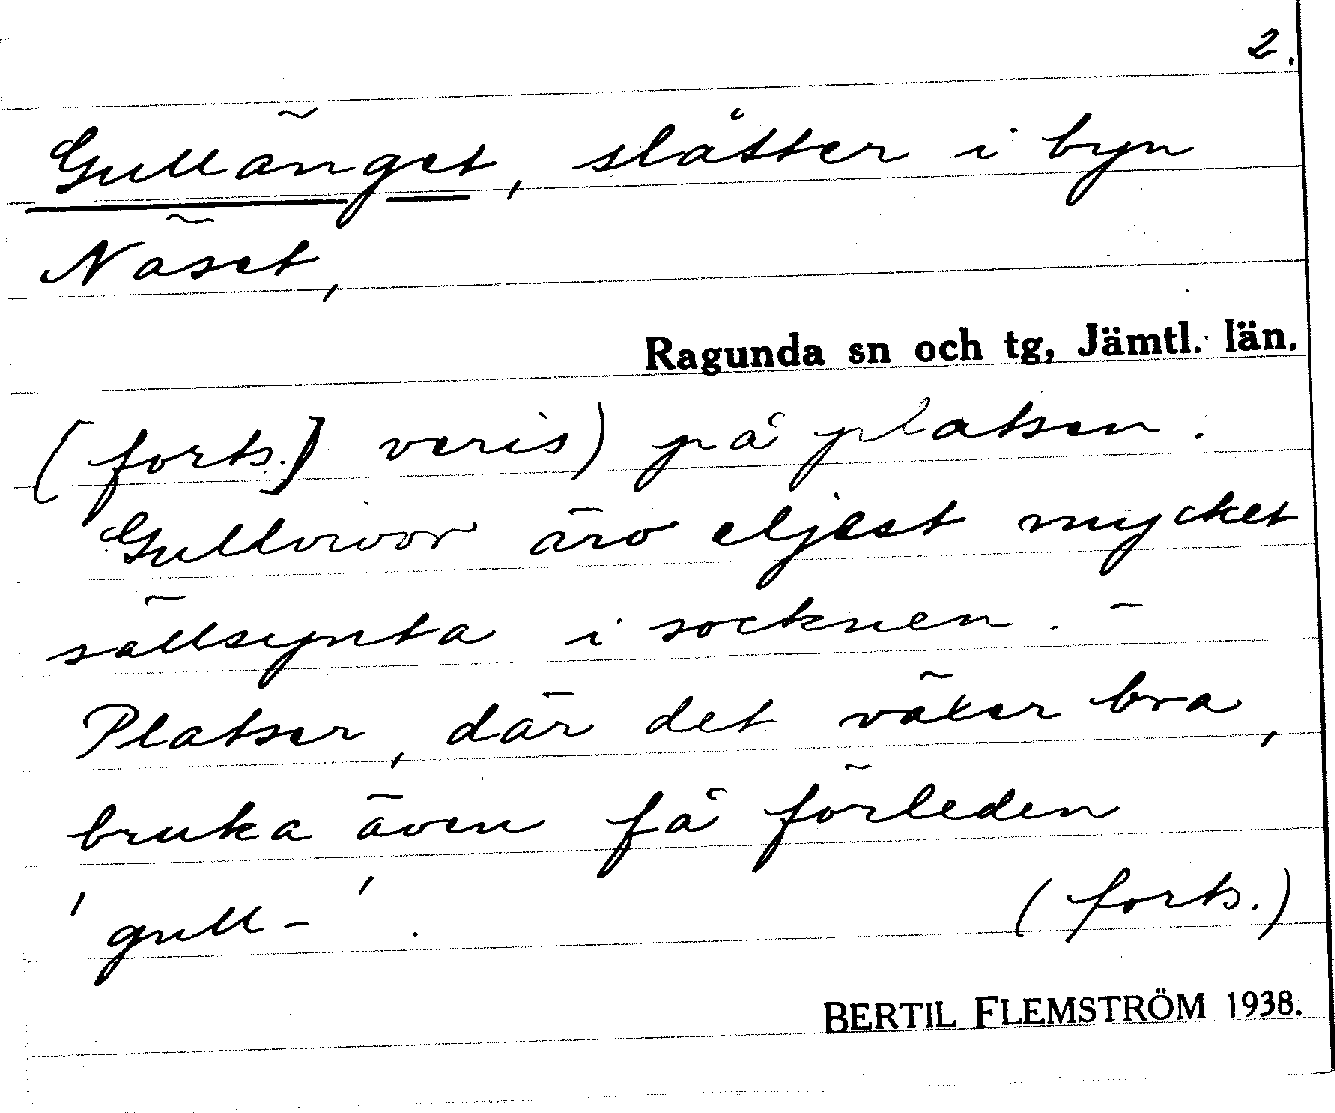 2.
Gulläng̲et, slåtter i byn
Näset,
Ragunda sn och tg, Jämtl. län.
(forts.] veris) på platsen.
Gullvivor äro eljest mycket
sällsynta i socknen. -
Platser, där det växer bra,
bruka även få förleden
'gull-'. (forts.)
BERTIL FLEMSTRÖM 1938.